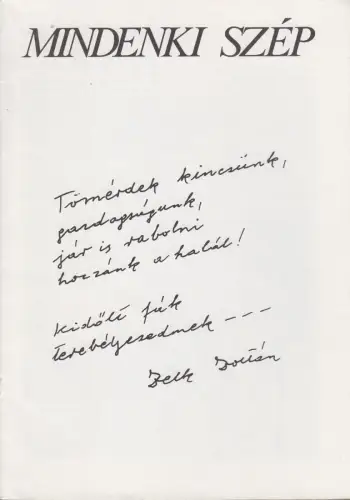 MINDENKI SZÉP
Tömérdek kincsünk,
gazdagságunk,
jár is rabolni
hozzánk a halál!
Kidőlt fák
terebélyesednek ---
Zelk Zoltán